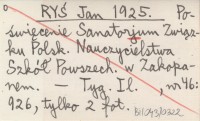 RYŚ Jan 1925. Po-
święcenie Sanatorjum Związ-
ku Polsk. Nauczycielstwa
Szkół Powszech. w Zakopa-
nem. — Tyg. Il., nr 46:
926, tylko 2 fot.